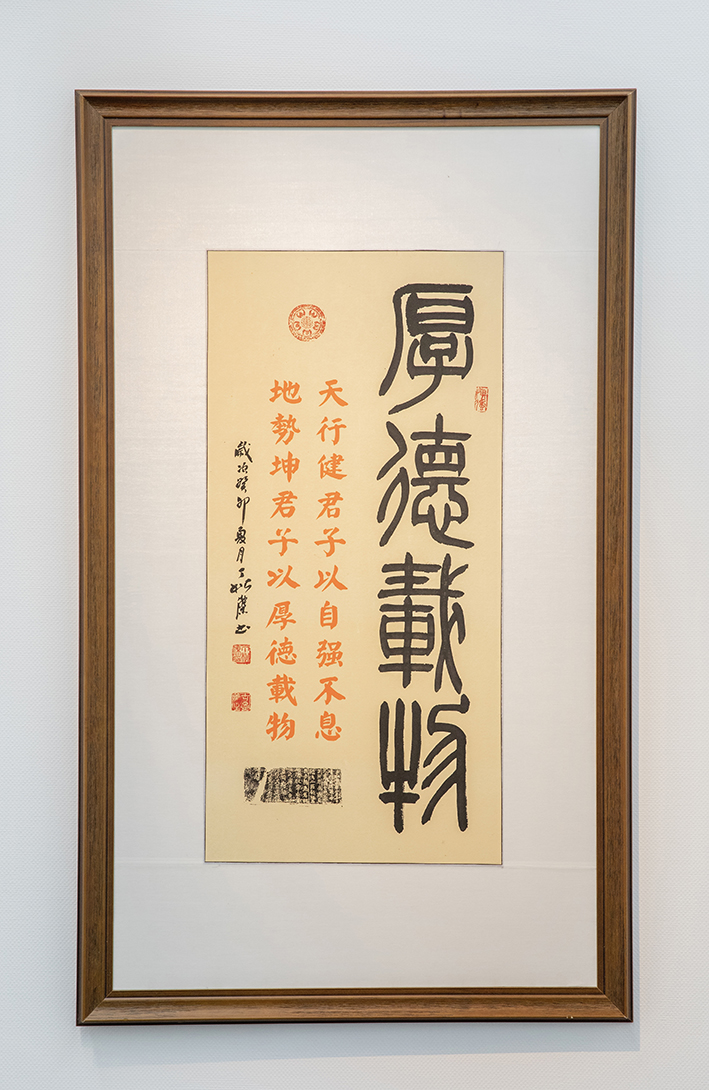 厚德載物
天行健君子以自强不息
地勢坤君子以厚德載物
歲次癸卯夏月